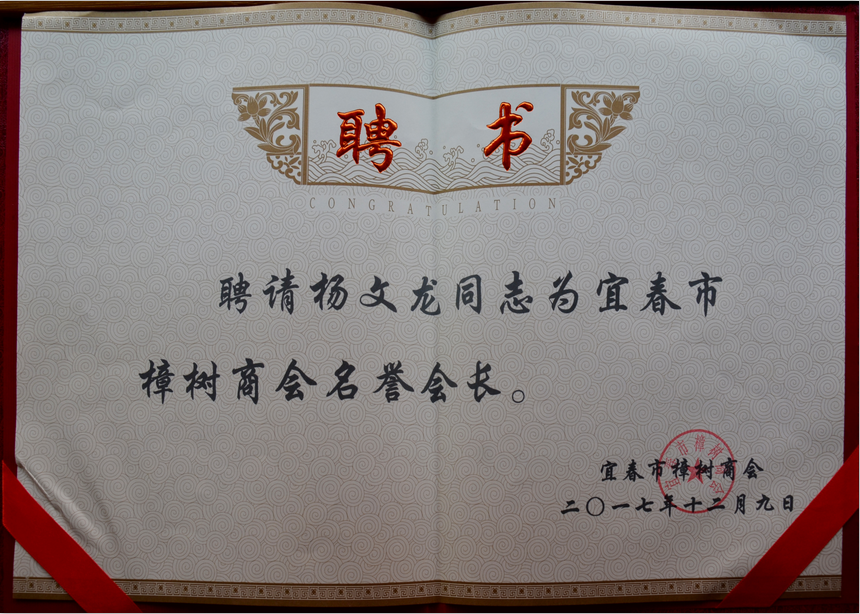 聘 书
CONGRATULATION
聘请杨文龙同志为宜春市
樟树商会名誉会长。
宜春市樟树商会
二〇一七年十二月九日